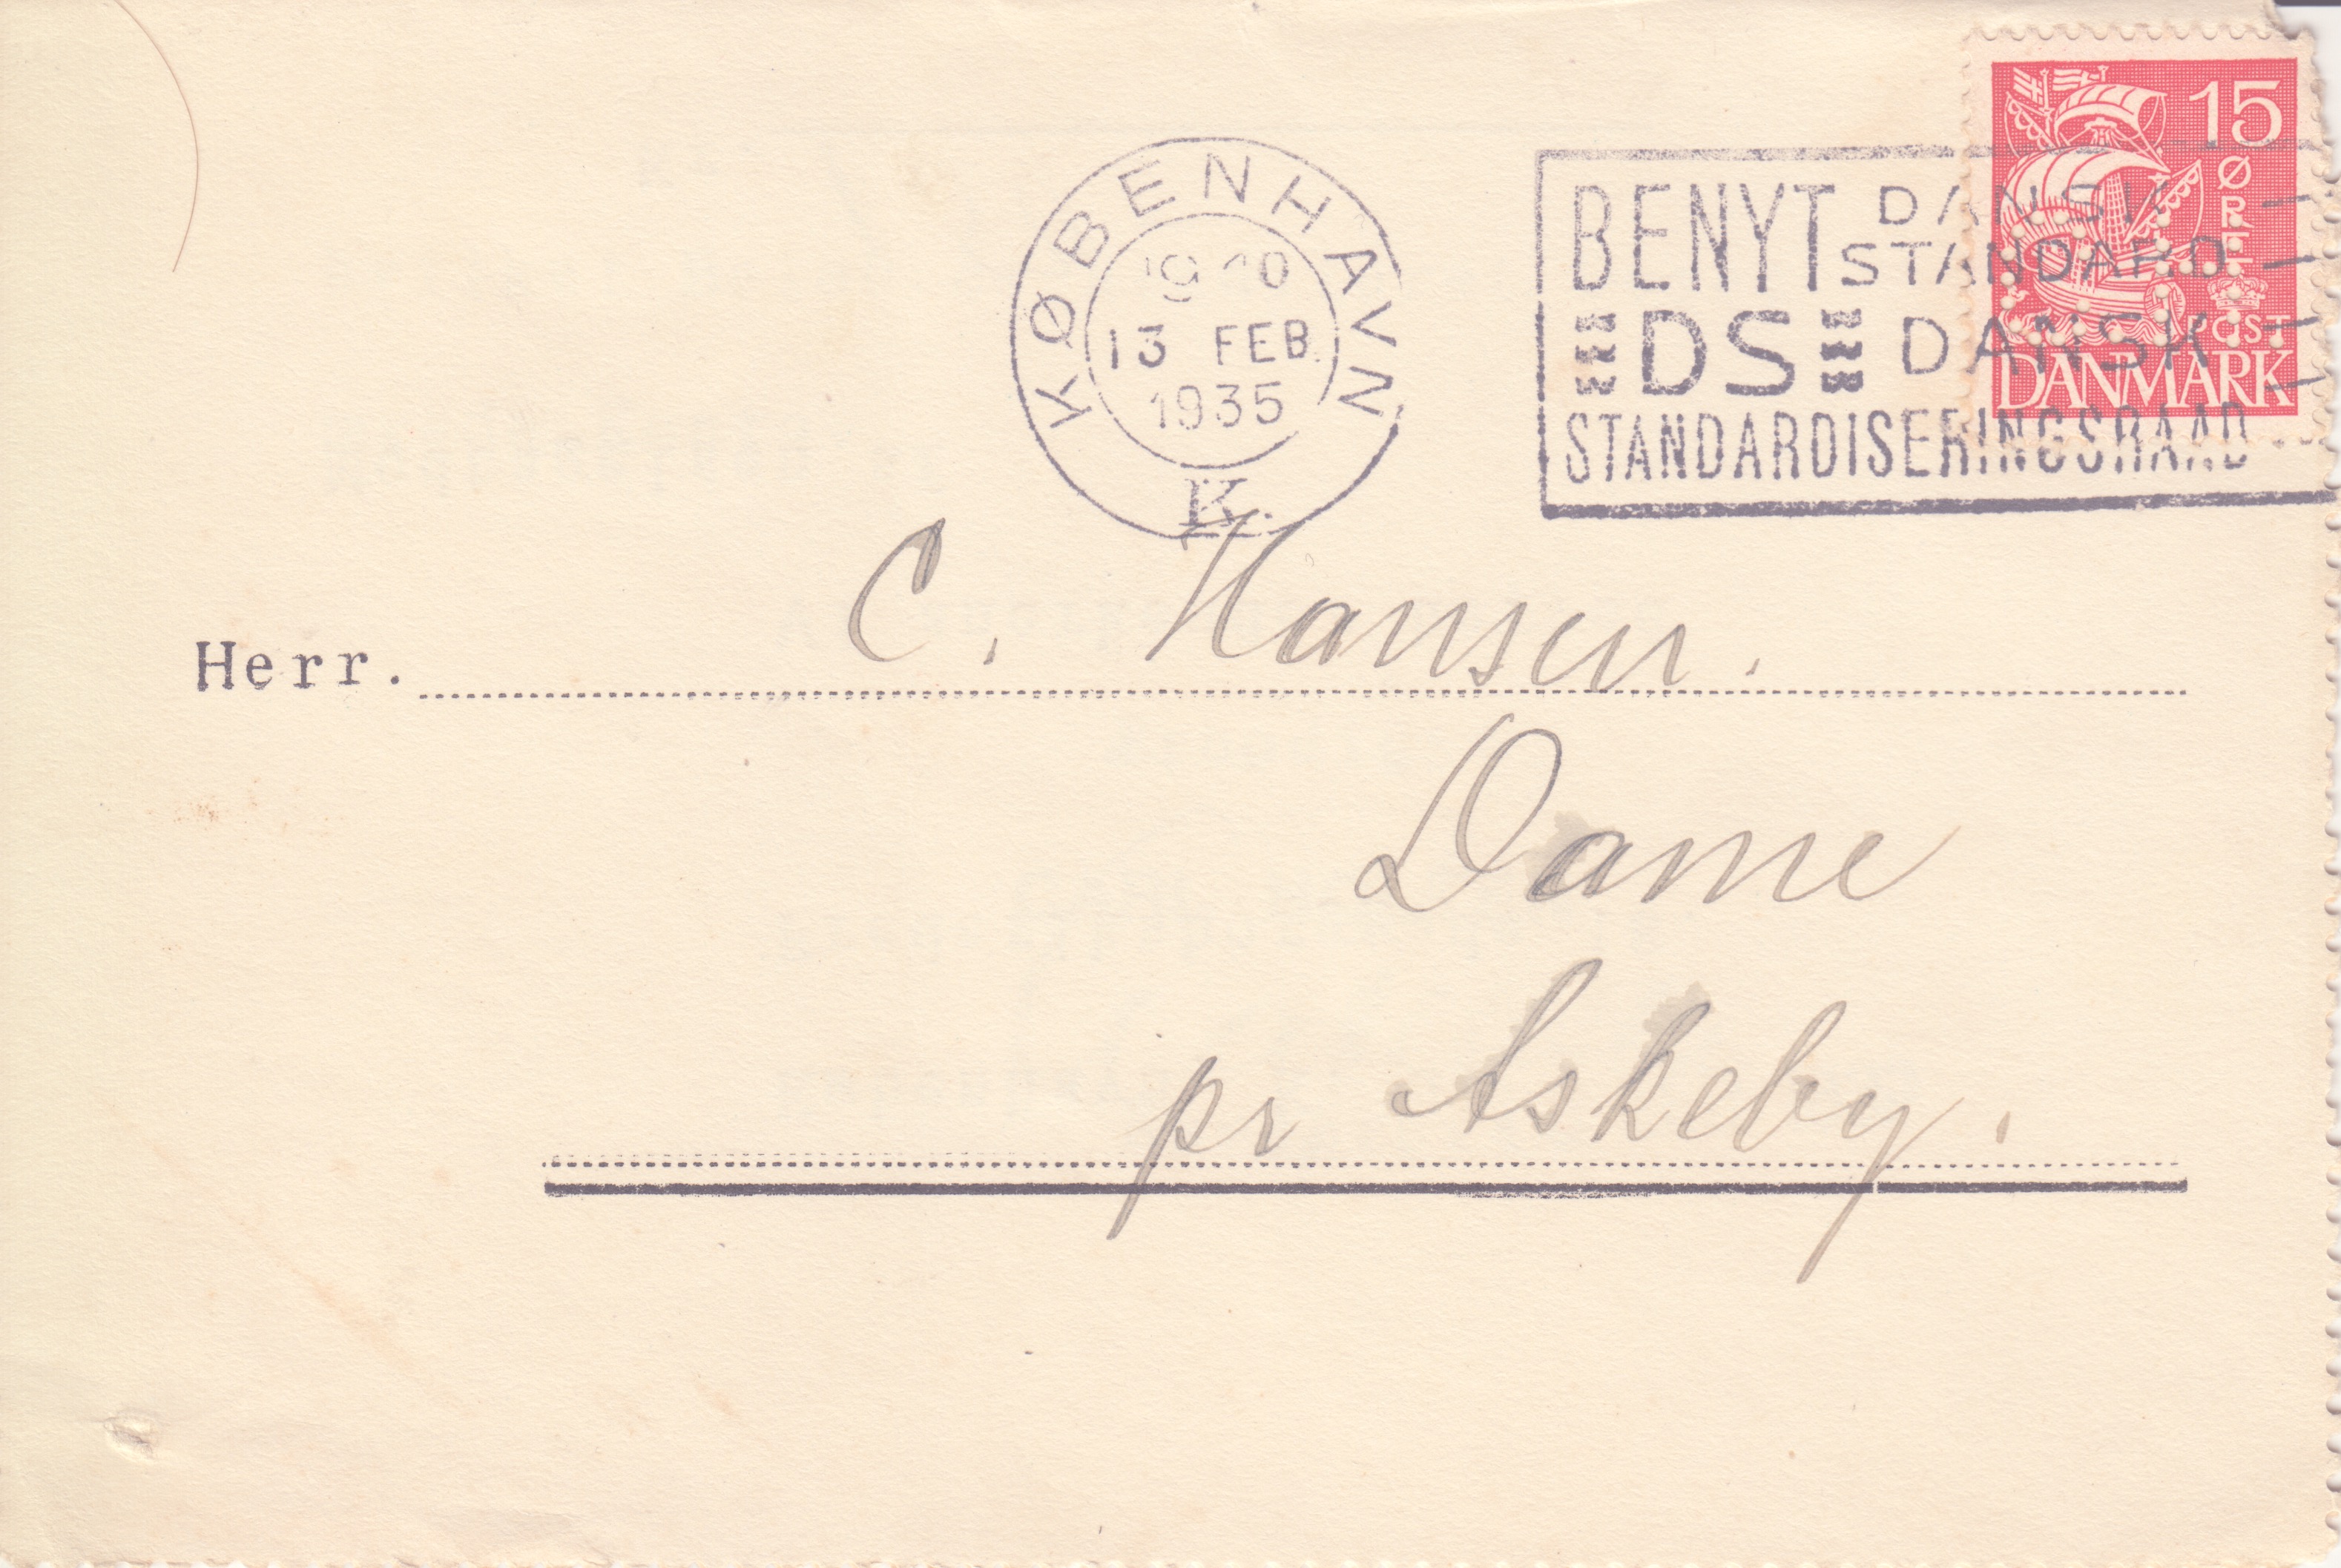 15
ØRE
POST
DANMARK
KØBENHAVN
13 FEB.
1935
K.
BENYT DANSK
STANDARD
DS DANSK
STANDARDISERINGSRAAD
Herr. C. Hansen.
Dame
pr Askeby.